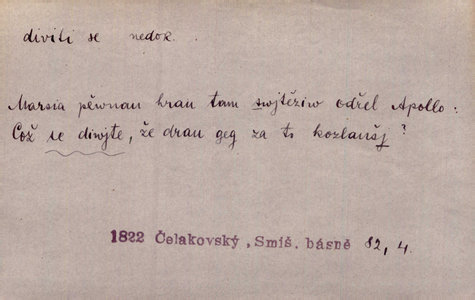 diviti se nedok.
Marsia pěwnau hrau tam swjtěziw odřel Apollo :
Což se diwjte, že drau geg za ti kozlaušj ?
1822 Čelakovský, Smíš. básně 82, 4.